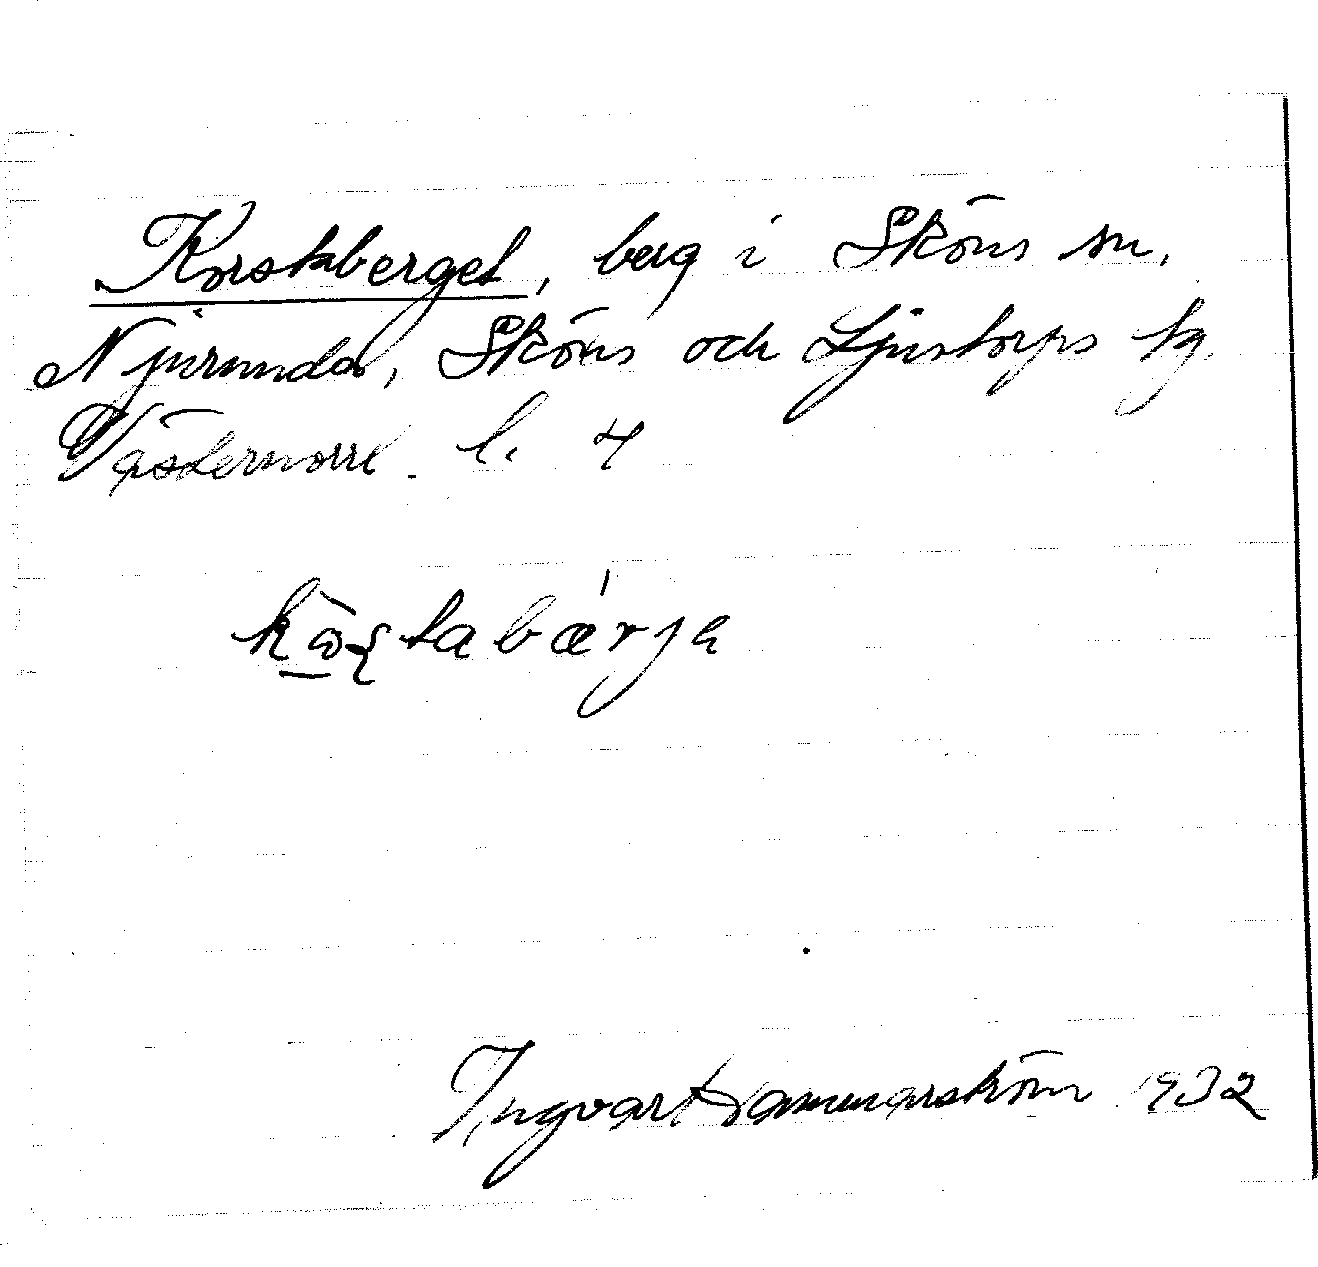 Korstaberget, berg i Sköns sn,
Njurunda, Sköns och Ljustorps tg
Västernorrl. l. 4
Ingvar Hammarström 1932